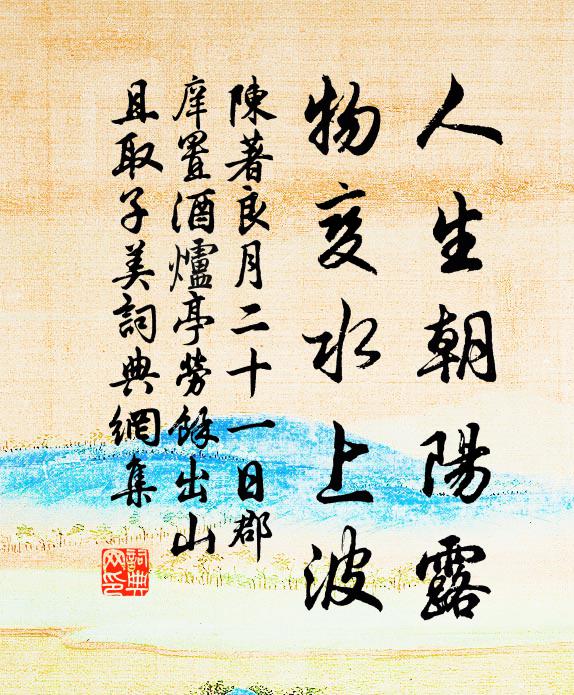 人生朝陽露
物变水上波
陳著良月二十一日郡
庠置酒爐亭勞餘出山
且取子美詞典網集
詞典网印